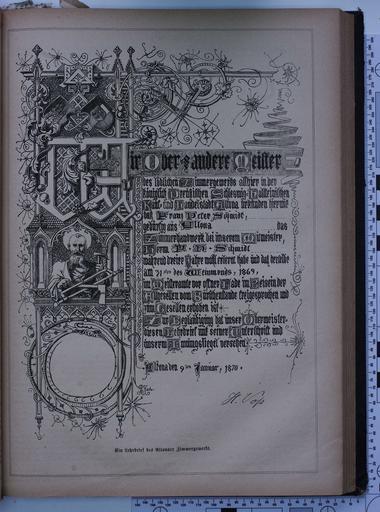 Wir Ober- & andere Meister
des löblichen Zimmergewerks allhier in der
Königlich Preußischen Schleswig-Holsteinischen
Kauf- und Handelsstadt Altona bekunden hiermit
daß Franz Peter Schmidt,
gebürtig aus Altona das
Zimmerhandwerk bei unserem Mitmeister,
Herrn Schmidt
während dreier Jahre voll erlernt habe und daß derselbe
am 21sten des Weinmonds, 1869,
im Meisteramte vor offner Lade im Beisein der
Altgesellen vom Burschenstande freigesprochen und
zum Gesellen erhoben ist
Zur Beglaubigung hat unser Obermeister
diesen Lehrbrief mit seiner Unterschrift und
unserm Innungssiegel versehen.
Altona den 9ten Januar, 1870.
Ein Lehrbrief des Altonaer Zimmergewerks.